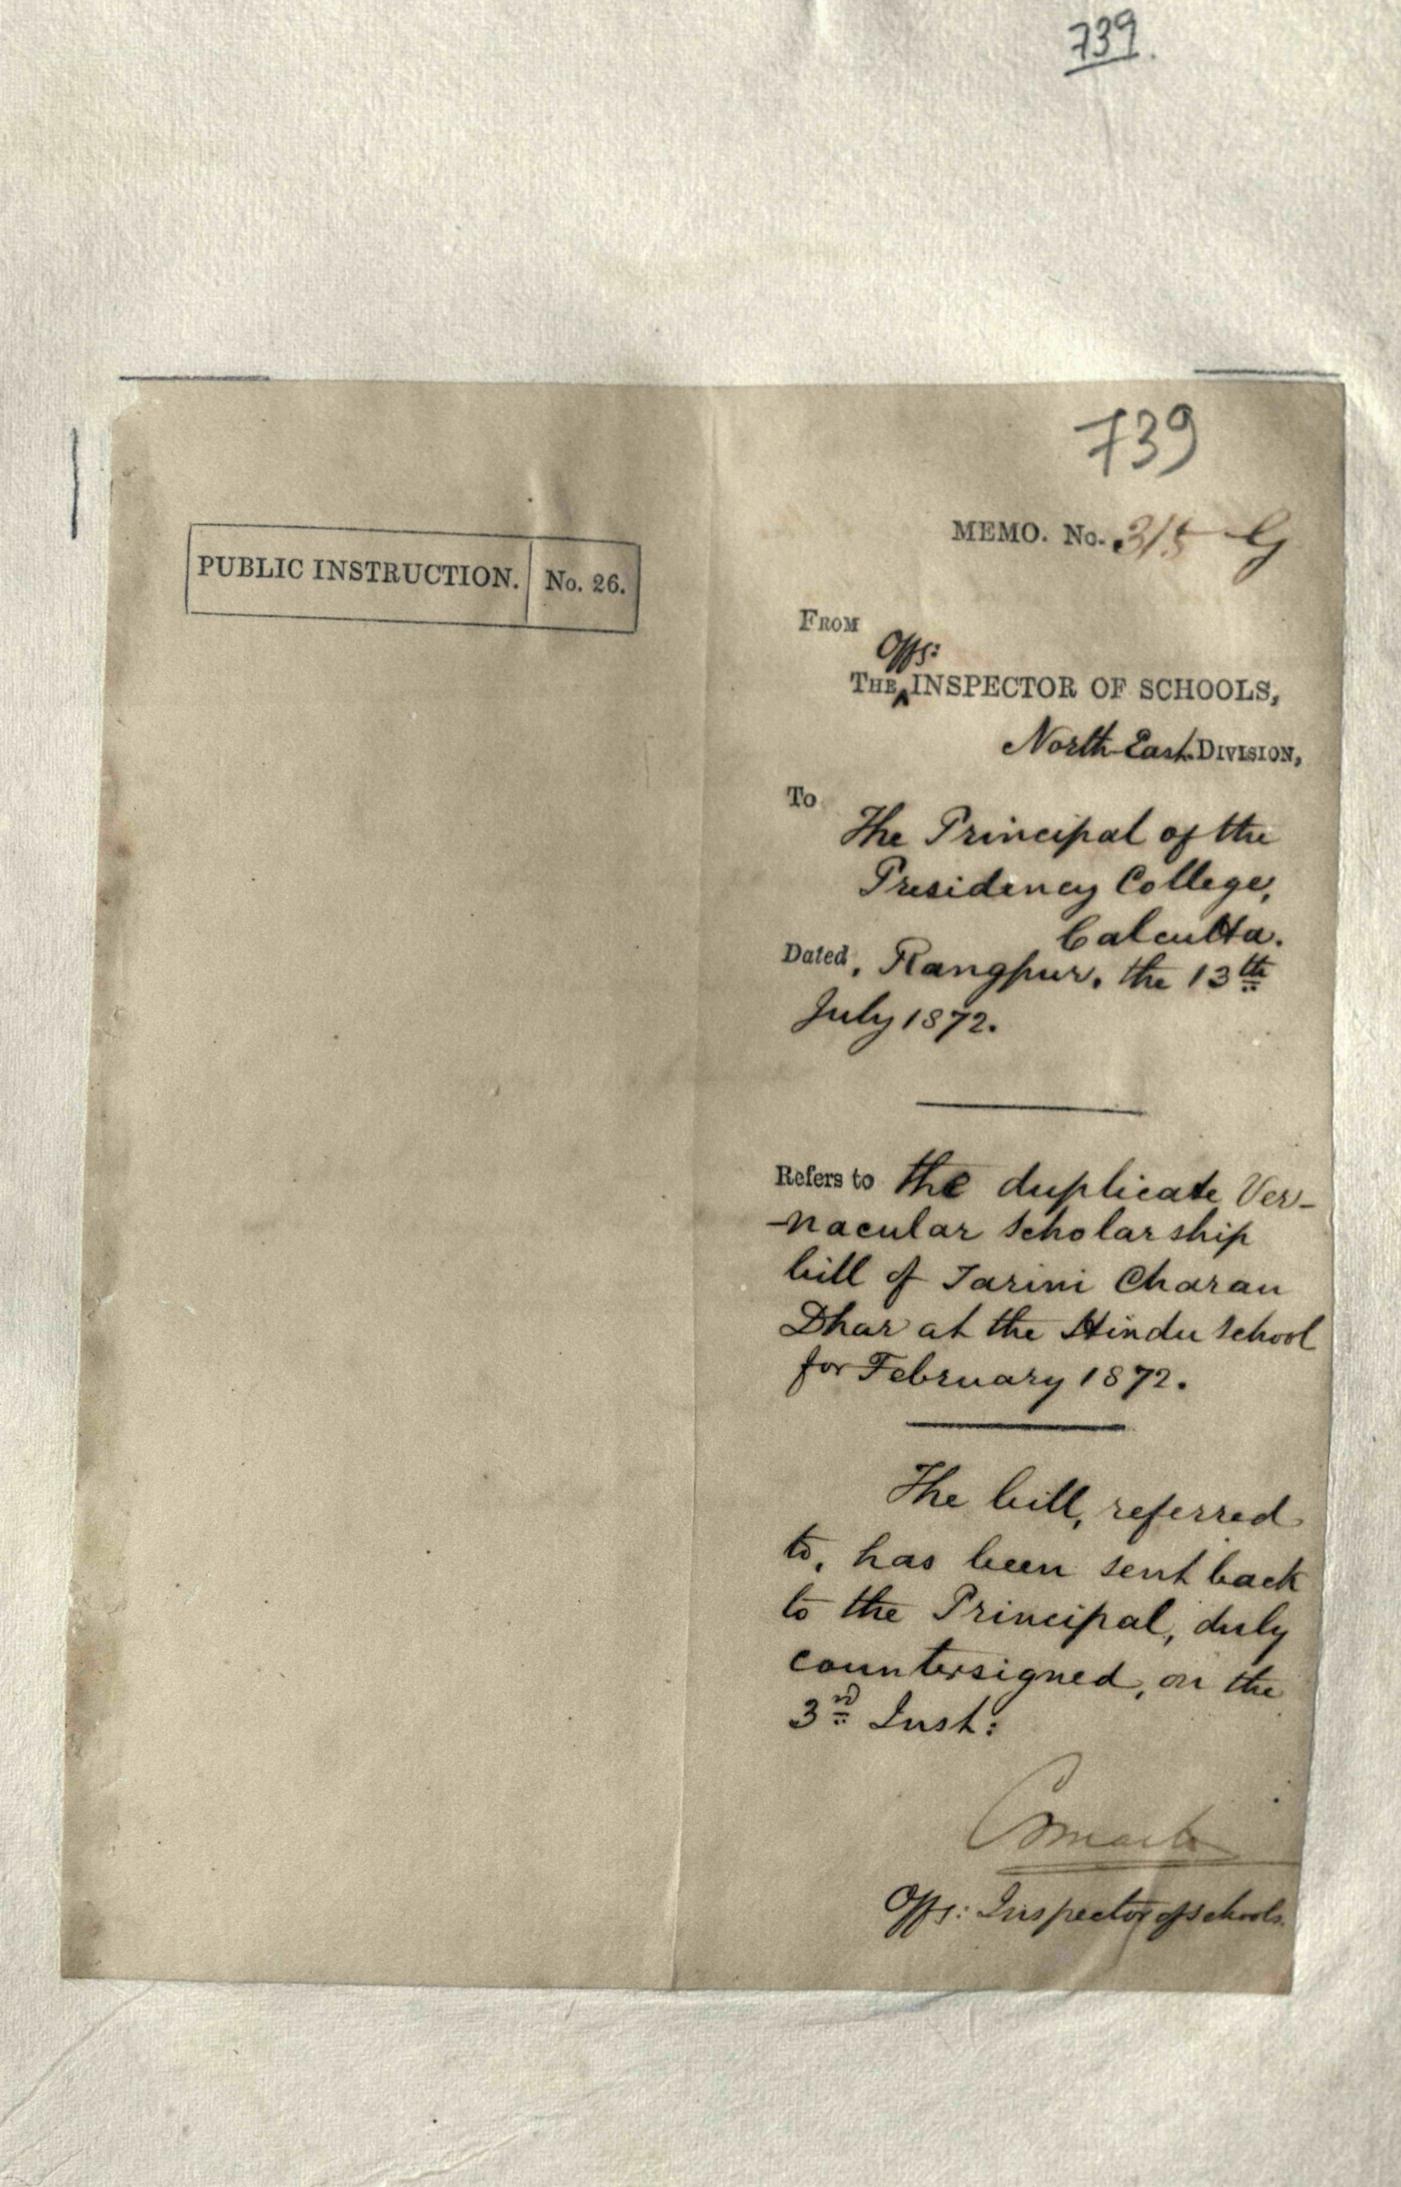 739.
739
PUBLIC INSTRUCTION. No. 26.
MEMO. No. 315 G
FROM
Offg:
THE INSPECTOR OF SCHOOLS,
North-East DIVISION,
To
The Principal of the
Presidency College,
Calcutta.
Dated, Rangpur, the 13th
July 1872.
Refers to the duplicate Ver-
-nacular Scholarship
bill of Tarini Charan
Dhar at the Hindu School
for February 1872.
The bill, referred
to, has been sent back
to the Principal, duly
countersigned, on the
3rd Inst:
Offg: Inspector of Schools.